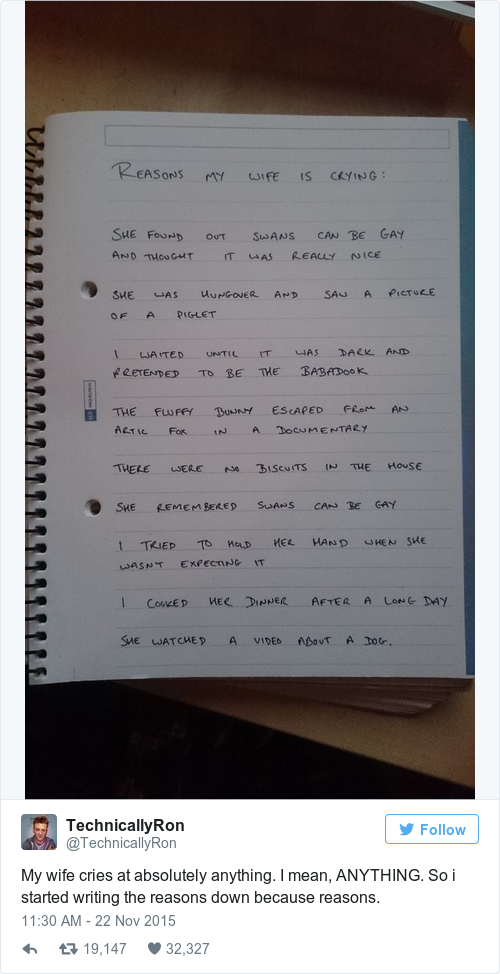 REASONS MY WIFE IS CRYING:
SHE FOUND OUT SWANS CAN BE GAY
AND THOUGHT IT WAS REALLY NICE
SHE WAS HUNGOVER AND SAW A PICTURE
OF A PIGLET
I WAITED UNTIL IT WAS DARK AND
PRETENDED TO BE THE BABADOOK
THE FLUFFY BUNNY ESCAPED FROM AN
ARTIC FOX IN A DOCUMENTARY
THERE WERE NO BISCUITS IN THE HOUSE
SHE REMEMBERED SWANS CAN BE GAY
I TRIED TO HOLD HER HAND WHEN SHE
WASNT EXPECTING IT
I COOKED HER DINNER AFTER A LONG DAY
SHE WATCHED A VIDEO ABOUT A DOG.
TechnicallyRon
@TechnicallyRon
Follow
My wife cries at absolutely anything. I mean, ANYTHING. So i
started writing the reasons down because reasons.
11:30 AM - 22 Nov 2015
19,147 32,327